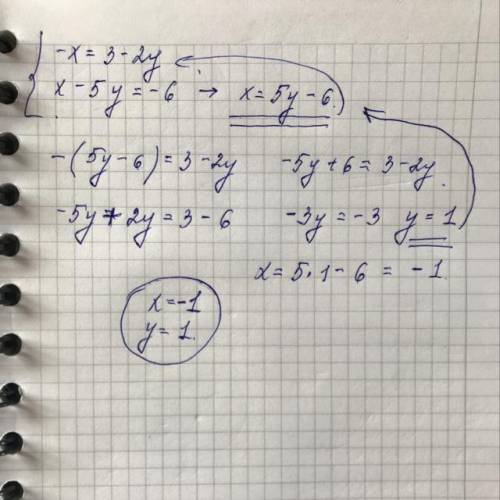 -x = 3 - 2y
x - 5y = -6 → x = 5y - 6.
-(5y - 6) = 3 - 2y -5y + 6 = 3 - 2y.
-5y + 2y = 3 - 6 -3y = -3 y = 1
x = 5 · 1 - 6 = -1.
x = -1
y = 1.